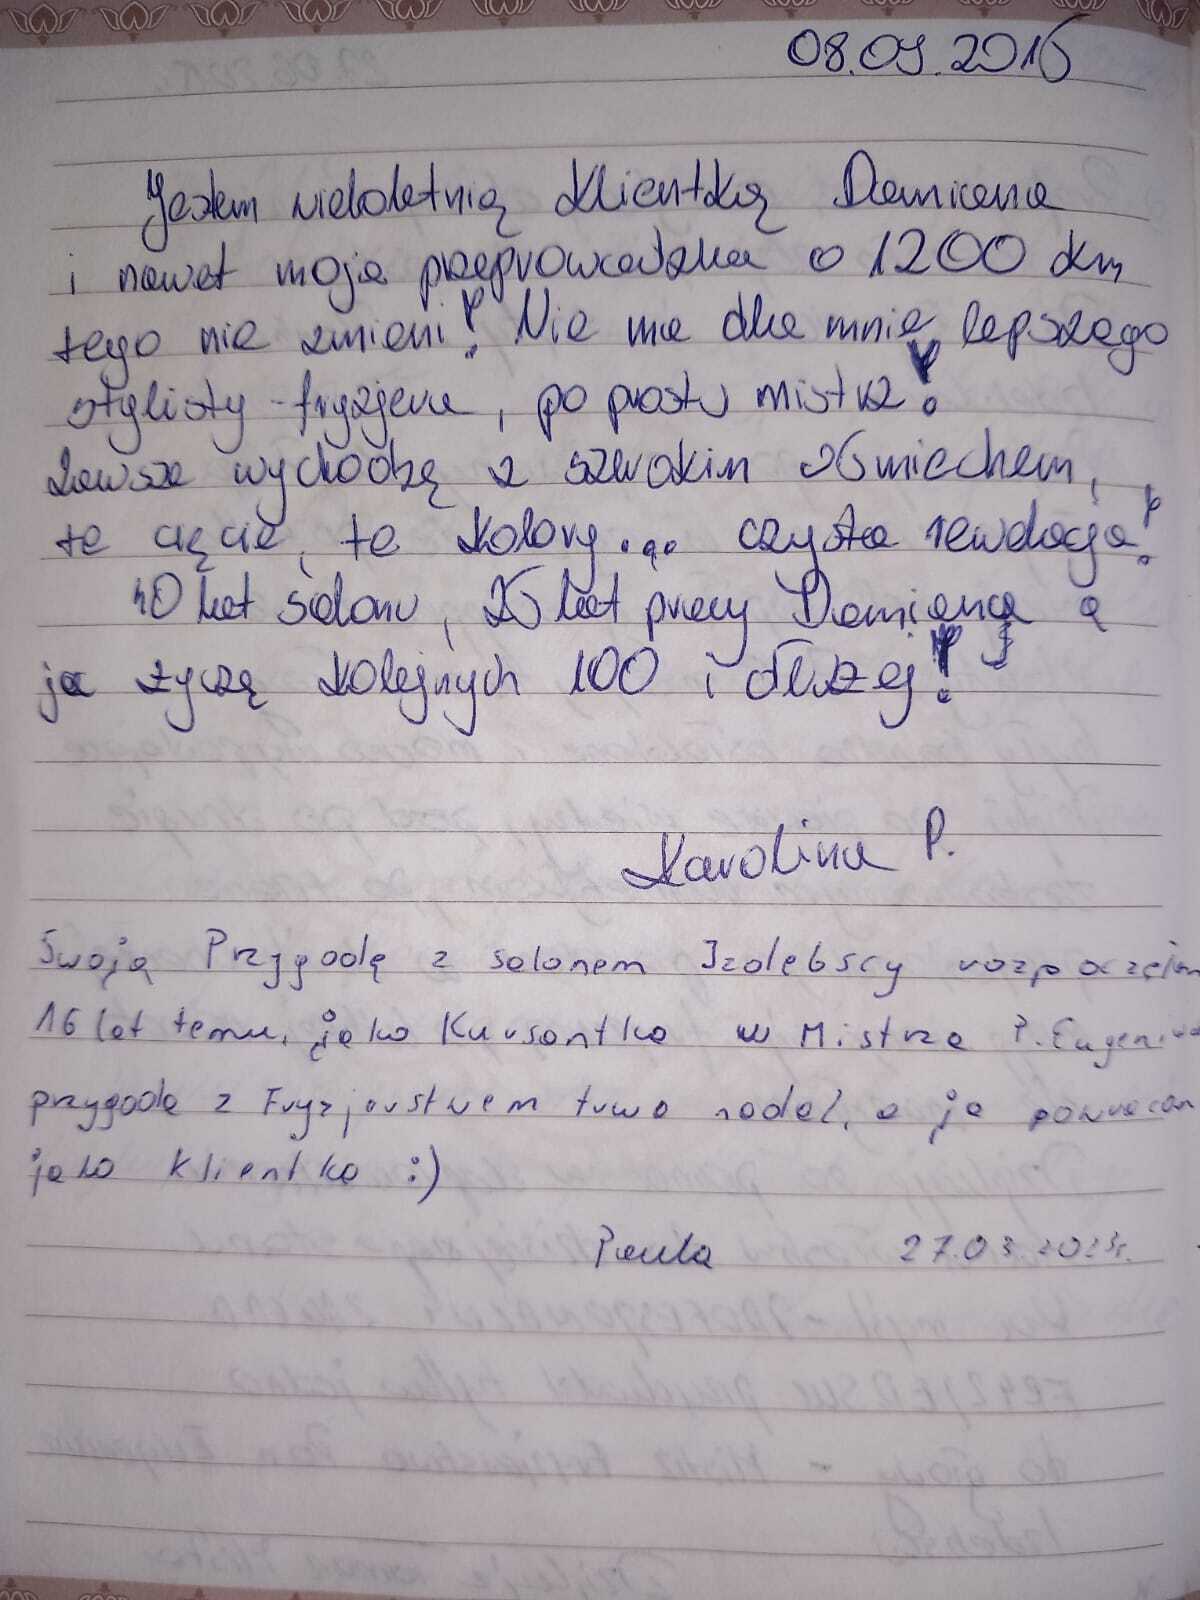 08.09.2016
Jestem wieloletnią klientką Damiana
i nawet moja przeprowadzka o 1200 km
tego nie zmieni! Nie ma dla mnie lepszego
stylisty-fryzjera, po prostu mistrz!
Zawsze wychodzę z szerokim uśmiechem,
te cięcie, te kolory... czysta rewelacja!
40 lat salonu, 25 lat pracy Damiana, a
ja życzę kolejnych 100 i dłużej!
Karolina P.
Swoją Przygodę z salonem Izdebscy rozpoczęłam
16 lat temu, jako Kursantka u Mistrza P. Eugeniusza
przygoda z Fryzjerstwem trwa nadal, a ja powracam
jako klientka :)
Paula 27.03.2023r.